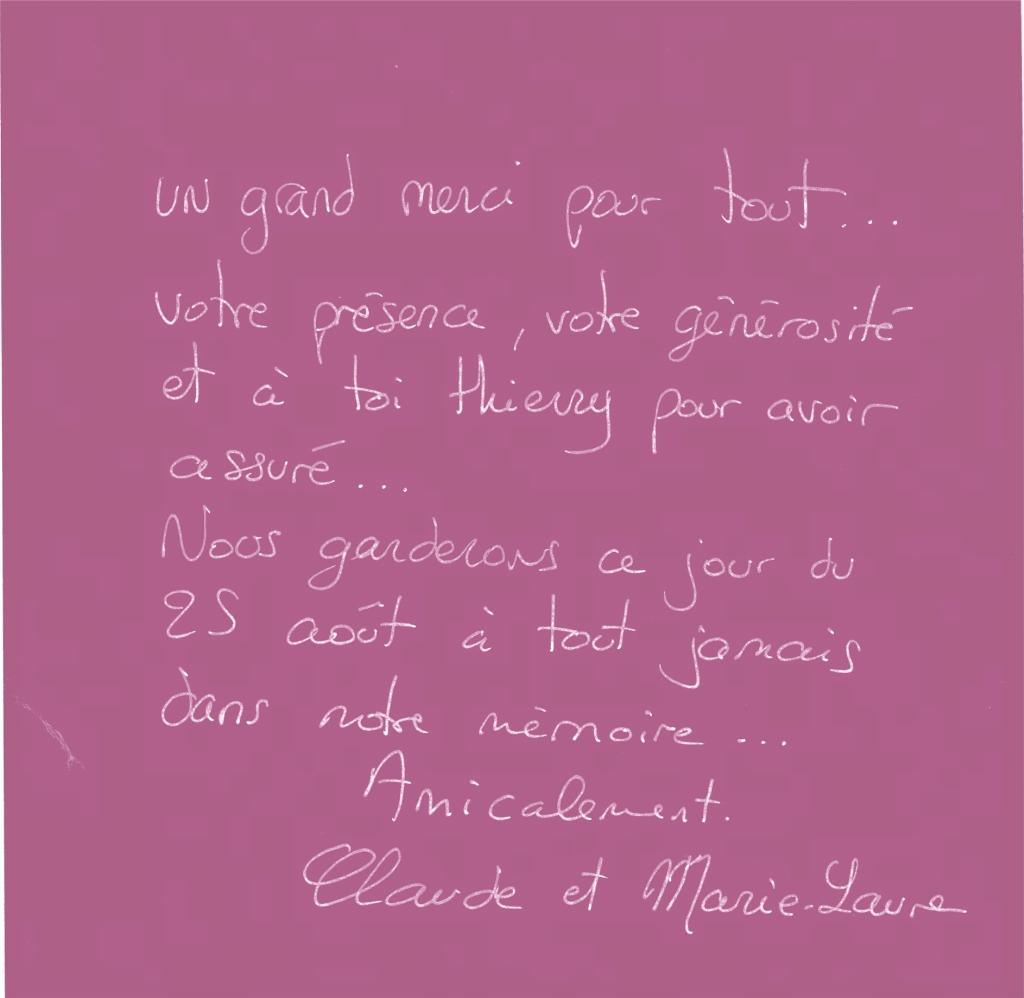 un grand merci pour tout...
votre présence, votre générosité
et à toi thierry pour avoir
assuré...
Nous garderons ce jour du
25 août à tout jamais
dans notre mémoire...
Amicalement.
Claude et Marie-Laure